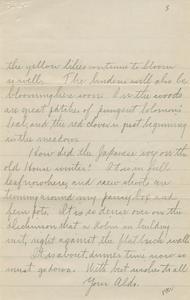 3
the yellow lilies continue to bloom
as well. The lindens will also be
blooming here soon. In the woods
are great patches of pungent Solomon's
Seal, and the red clover is just beginning
in the meadow.
How did the Japanese ivy on the
old House winter? It is in full
leaf now here, and new shoots are
coming around my pansy box and
fern pots. It is so dense over on the
that a Robin is building
nest, right against the flat brick wall.
It is about dinner time now so
must go down. With best wishes to all
Your Aldo.